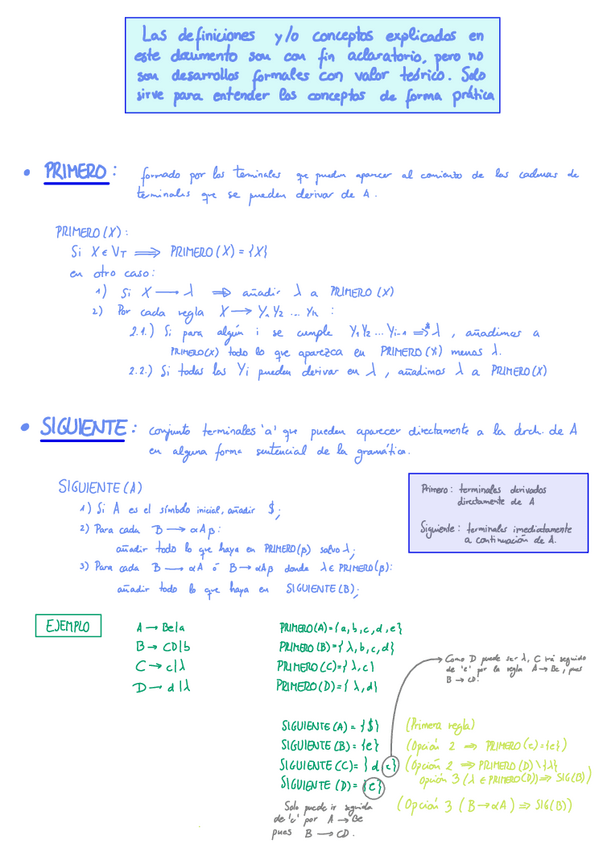 Las definiciones y/o conceptos explicados en
este documento son con fin aclaratorio, pero no
son desarrollos formales con valor teórico. Solo
sirve para entender los conceptos de forma prática
• PRIMERO: formado por los terminales que pueden aparecer al comienzo de las cadenas de
terminales que se pueden derivar de A.
PRIMERO(X):
Si X ∈ V_T ⟹ PRIMERO(X) = {X}
en otro caso:
1) Si X → λ ⟹ añadir λ a PRIMERO(X)
2) Por cada regla X → Y₁Y₂ ... Yₙ :
2.1.) Si para algún i se cumple Y₁Y₂ ... Yᵢ₋₁ ⇒* λ, añadimos a
PRIMERO(X) todo lo que aparezca en PRIMERO(X) menos λ.
2.2.) Si todas las Yi pueden derivar en λ, añadimos λ a PRIMERO(X)
• SIGUIENTE: conjunto terminales 'a' que pueden aparecer directamente a la drch. de A
en alguna forma sentencial de la gramática.
SIGUIENTE(A)
1) Si A es el símbolo inicial, añadir $;
2) Para cada B → αAβ:
añadir todo lo que haya en PRIMERO(β) salvo λ;
3) Para cada B → αA ó B → αAβ donde λ ∈ PRIMERO(β):
añadir todo lo que haya en SIGUIENTE(B);
Primero: terminales derivados
directamente de A
Siguiente: terminales inmediatamente
a continuación de A.
EJEMPLO
A → Be|a
B → CD|b
C → c|λ
D → d|λ
PRIMERO(A) = {a, b, c, d, e}
PRIMERO(B) = {λ, b, c, d}
PRIMERO(C) = {λ, c}
PRIMERO(D) = {λ, d}
Como D puede ser λ, C irá seguido
de 'e' por la regla A → Be, pues
B → CD.
SIGUIENTE(A) = {$} (Primera regla)
SIGUIENTE(B) = {e} (Opción 2 ⟹ PRIMERO(e) = {e})
SIGUIENTE(C) = {d e} (Opción 2 ⟹ PRIMERO(D) \ {λ}
opción 3 (λ ∈ PRIMERO(D)) ⟹ SIG(B))
SIGUIENTE(D) = {e}
(Opción 3 (B → αA) ⟹ SIG(B))
Solo puede ir seguida
de 'e' por A → Be
pues B → CD.